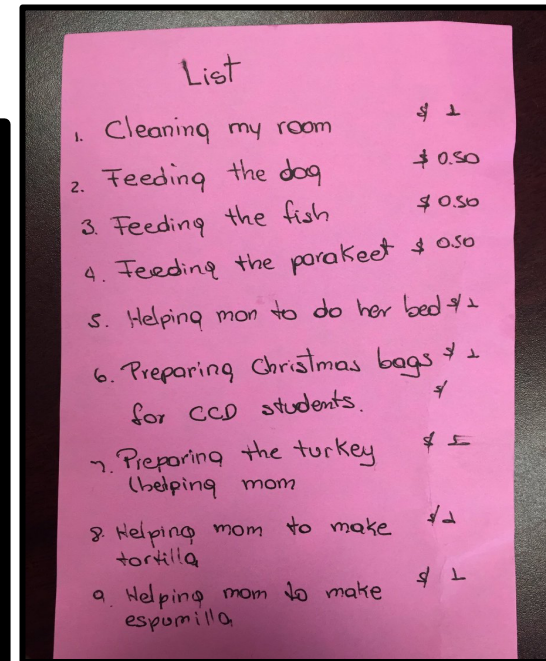 List
1. Cleaning my room $ 1
2. Feeding the dog $ 0.50
3. Feeding the fish $ 0.50
4. Feeding the parakeet $ 0.50
5. Helping mon to do her bed $ 1
6. Preparing Christmas bags $ 1
for CCD students. $
7. Preparing the turkey $
(helping mom
8. Helping mom to make $ 1
tortilla
9. Helping mom to make $ 1
espumilla